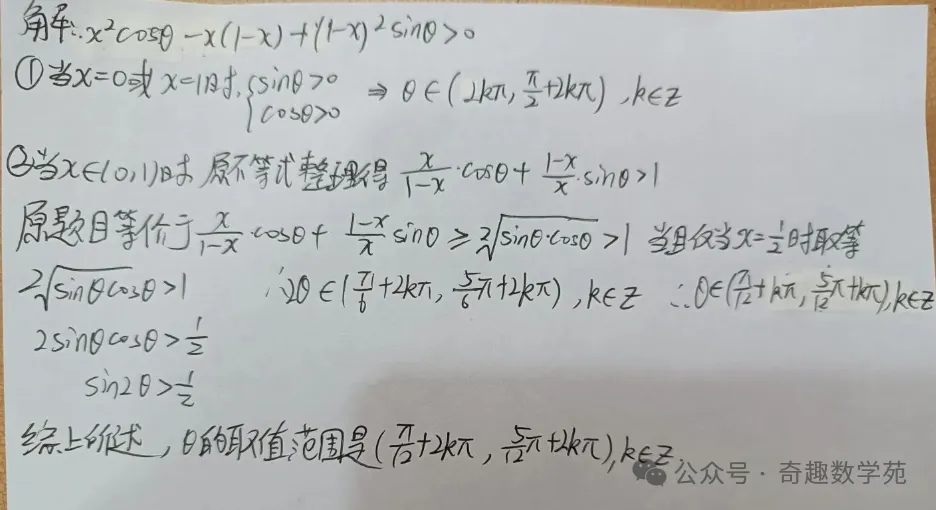 解:x²cosθ-x(1-x)+(1-x)²sinθ>0
①当x=0或x=1时,{sinθ>0 cosθ>0 ⇒ θ∈(2kπ,π/2+2kπ),k∈Z
②当x∈(0,1)时 原不等式整理得 x/(1-x)·cosθ+(1-x)/x·sinθ>1
原题目等价于x/(1-x)·cosθ+(1-x)/x sinθ≥2√(sinθ·cosθ)>1 当且仅当x=1/2时取等
2√(sinθcosθ)>1 ∴2θ∈(π/6+2kπ,5/6π+2kπ),k∈Z ∴θ∈(π/12+kπ,5/12π+kπ),k∈Z
2sinθcosθ>1/2
sin2θ>1/2
综上所述,θ的取值范围是(π/12+2kπ,5/12π+2kπ),k∈Z.
公众号·奇趣数学苑